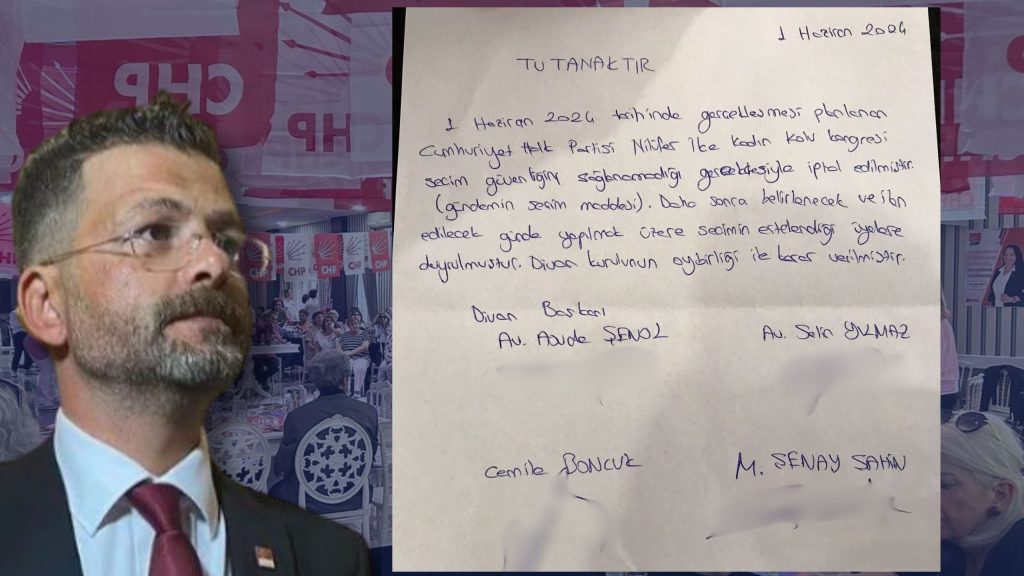 CHP
CHP
CHP
CHP
1 Haziran 2024
TUTANAKTIR
1 Haziran 2024 tarihinde gerçekleşmesi planlanan
Cumhuriyet Halk Partisi Nilüfer İlçe Kadın Kolu kongresi
seçim güvenliğinin sağlanamadığı gerekçesiyle iptal edilmiştir.
(gündemin seçim maddesi). Daha sonra belirlenecek ve ilan
edilecek günde yapılmak üzere seçimin ertelendiği üyelere
duyrulmuştur. Divan kurulunun oybirliği ile karar verilmiştir.
Divan Başkanı
Av. Abude ŞENOL
Av. Selin YILMAZ
Cemile BONCUK
M. ŞENAY ŞAHİN